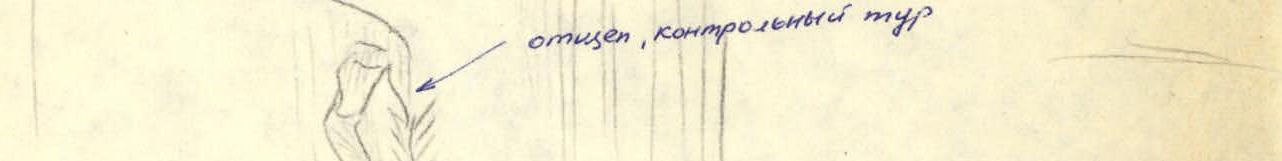 отщеп, контрольный тур